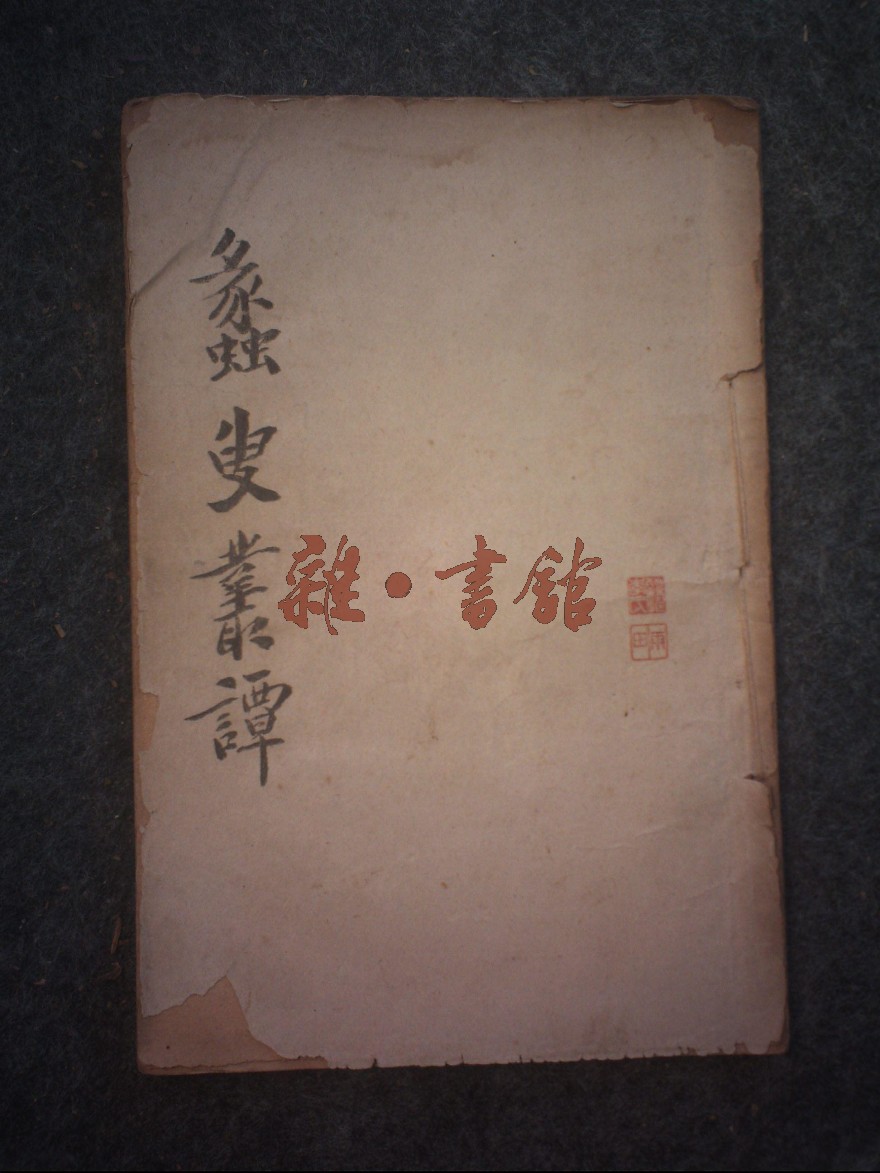 蠡叟叢譚
雜·書館